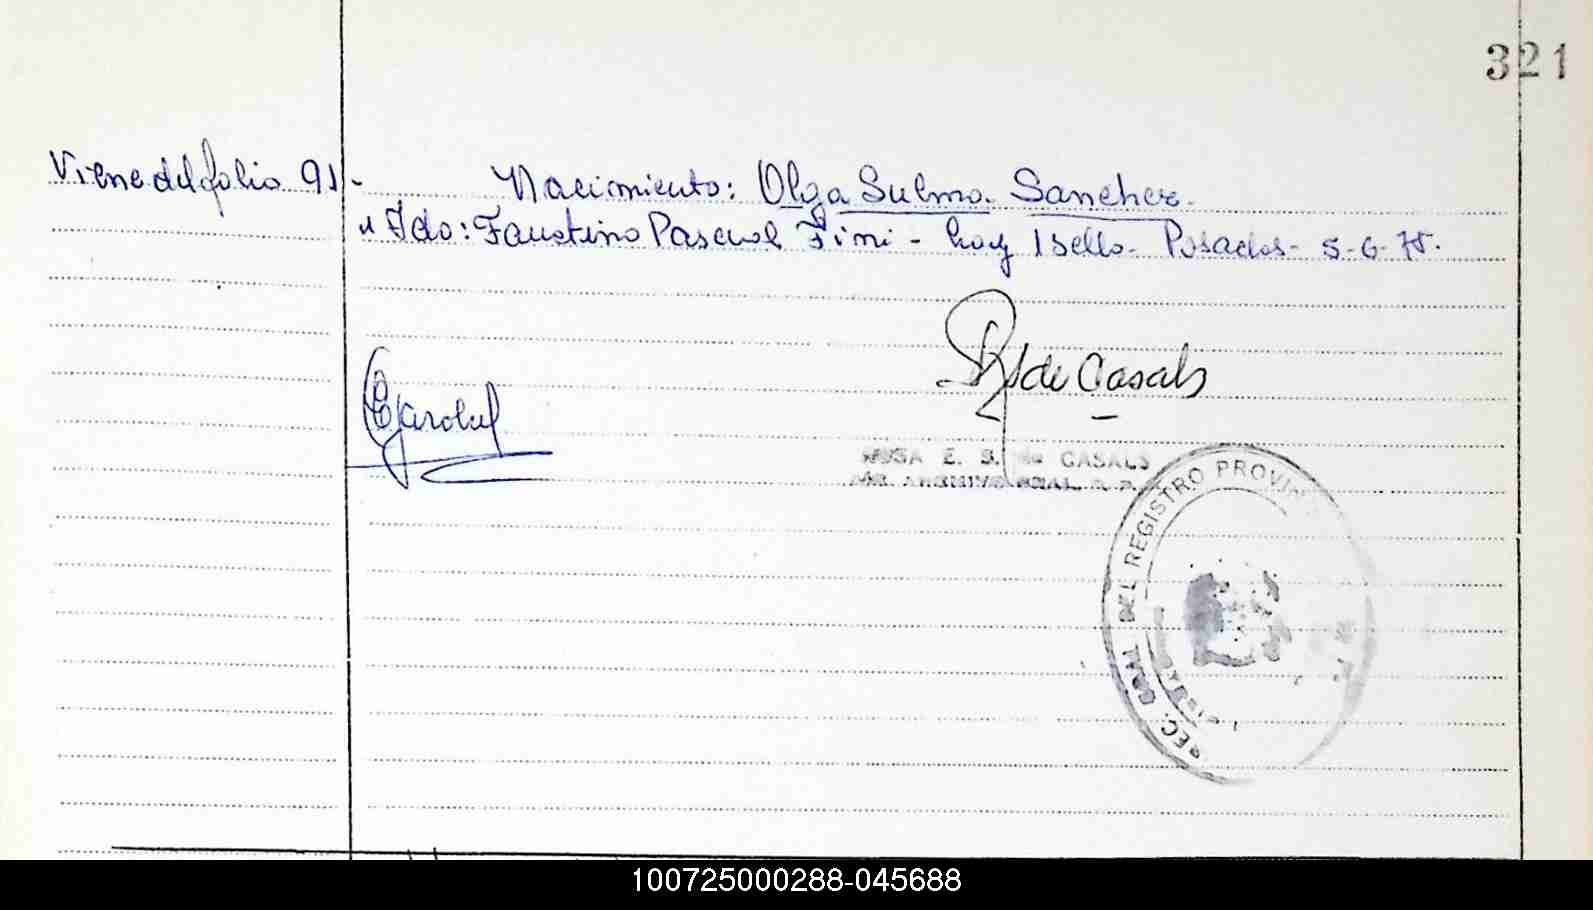 321
Viene del folio 91 - Nacimiento: Olga Sulma Sanchez.
Ido: Faustino Pascual Fini - hoy Isello - Posadas - 5-6-75.
de Casals
E. S. de CASALS
GRAL. DEL REGISTRO PROVIN
100725000288-045688